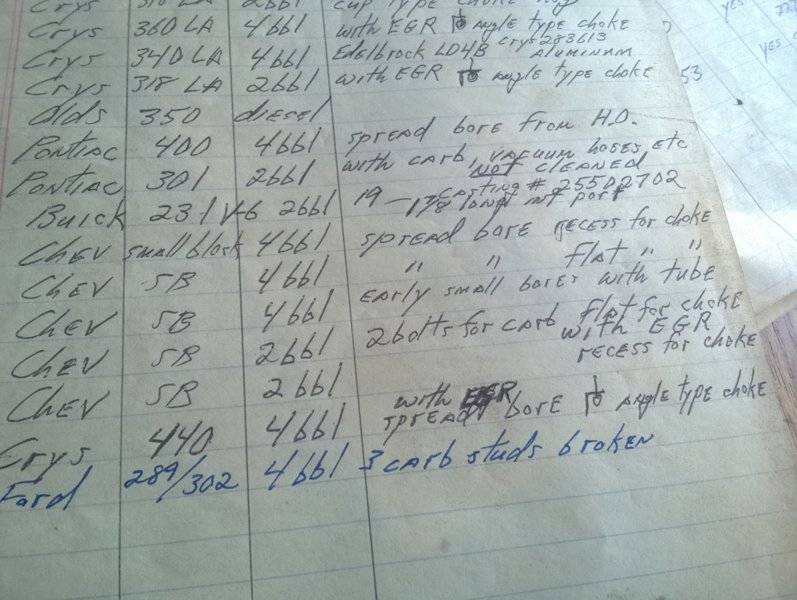 Crys 318 LA 2bbl cup type choke
yes
Crys 360 LA 4bbl with EGR angle type choke
Crys 340 LA 4bbl Edelbrock LD4B Crys 283613 ALUMINUM
yes
Crys 318 LA 2bbl with EGR angle type choke
53
Olds 350 diesel
Pontiac 400 4bbl spread bore from H.O.
Pontiac 301 2bbl with carb, vacuum hoses etc
NOT CLEANED
Buick 231 V-6 2bbl 19 — casting # 25502702
1 7/8
port
Chev small block 4bbl spread bore recess for choke
Chev SB 4bbl " " flat " "
Chev SB 4bbl early small bores with tube
Chev SB 2bbl 2 bolts for carb flat for choke
with EGR
Chev SB 2bbl recess for choke
with EGR
Crys 440 4bbl spread bore angle type choke
Ford 289/302 4bbl 3 carb studs broken